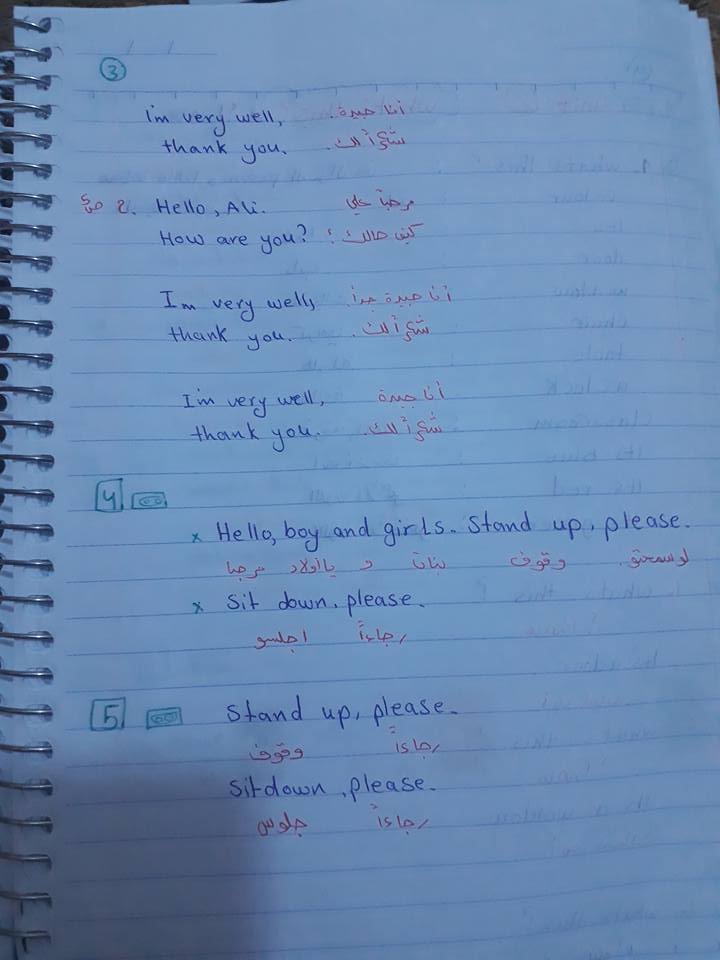 3
i'm very well, أنا جيدة.
thank you. شكراً لك.
2. Hello, Ali. مرحباً علي
How are you? كيف حالك؟
I'm very well, أنا جيدة جداً.
thank you. شكراً لك.
I'm very well, أنا جيدة
thank you. شكراً لك.
4
x Hello, boy and girls. Stand up, please.
مرحبا يا اولاد و بنات وقوف لو سمحتو.
x Sit down, please.
اجلسو رجاءاً
5 Stand up, please.
وقوف رجاءاً
Sit down, please.
جلوس رجاءاً